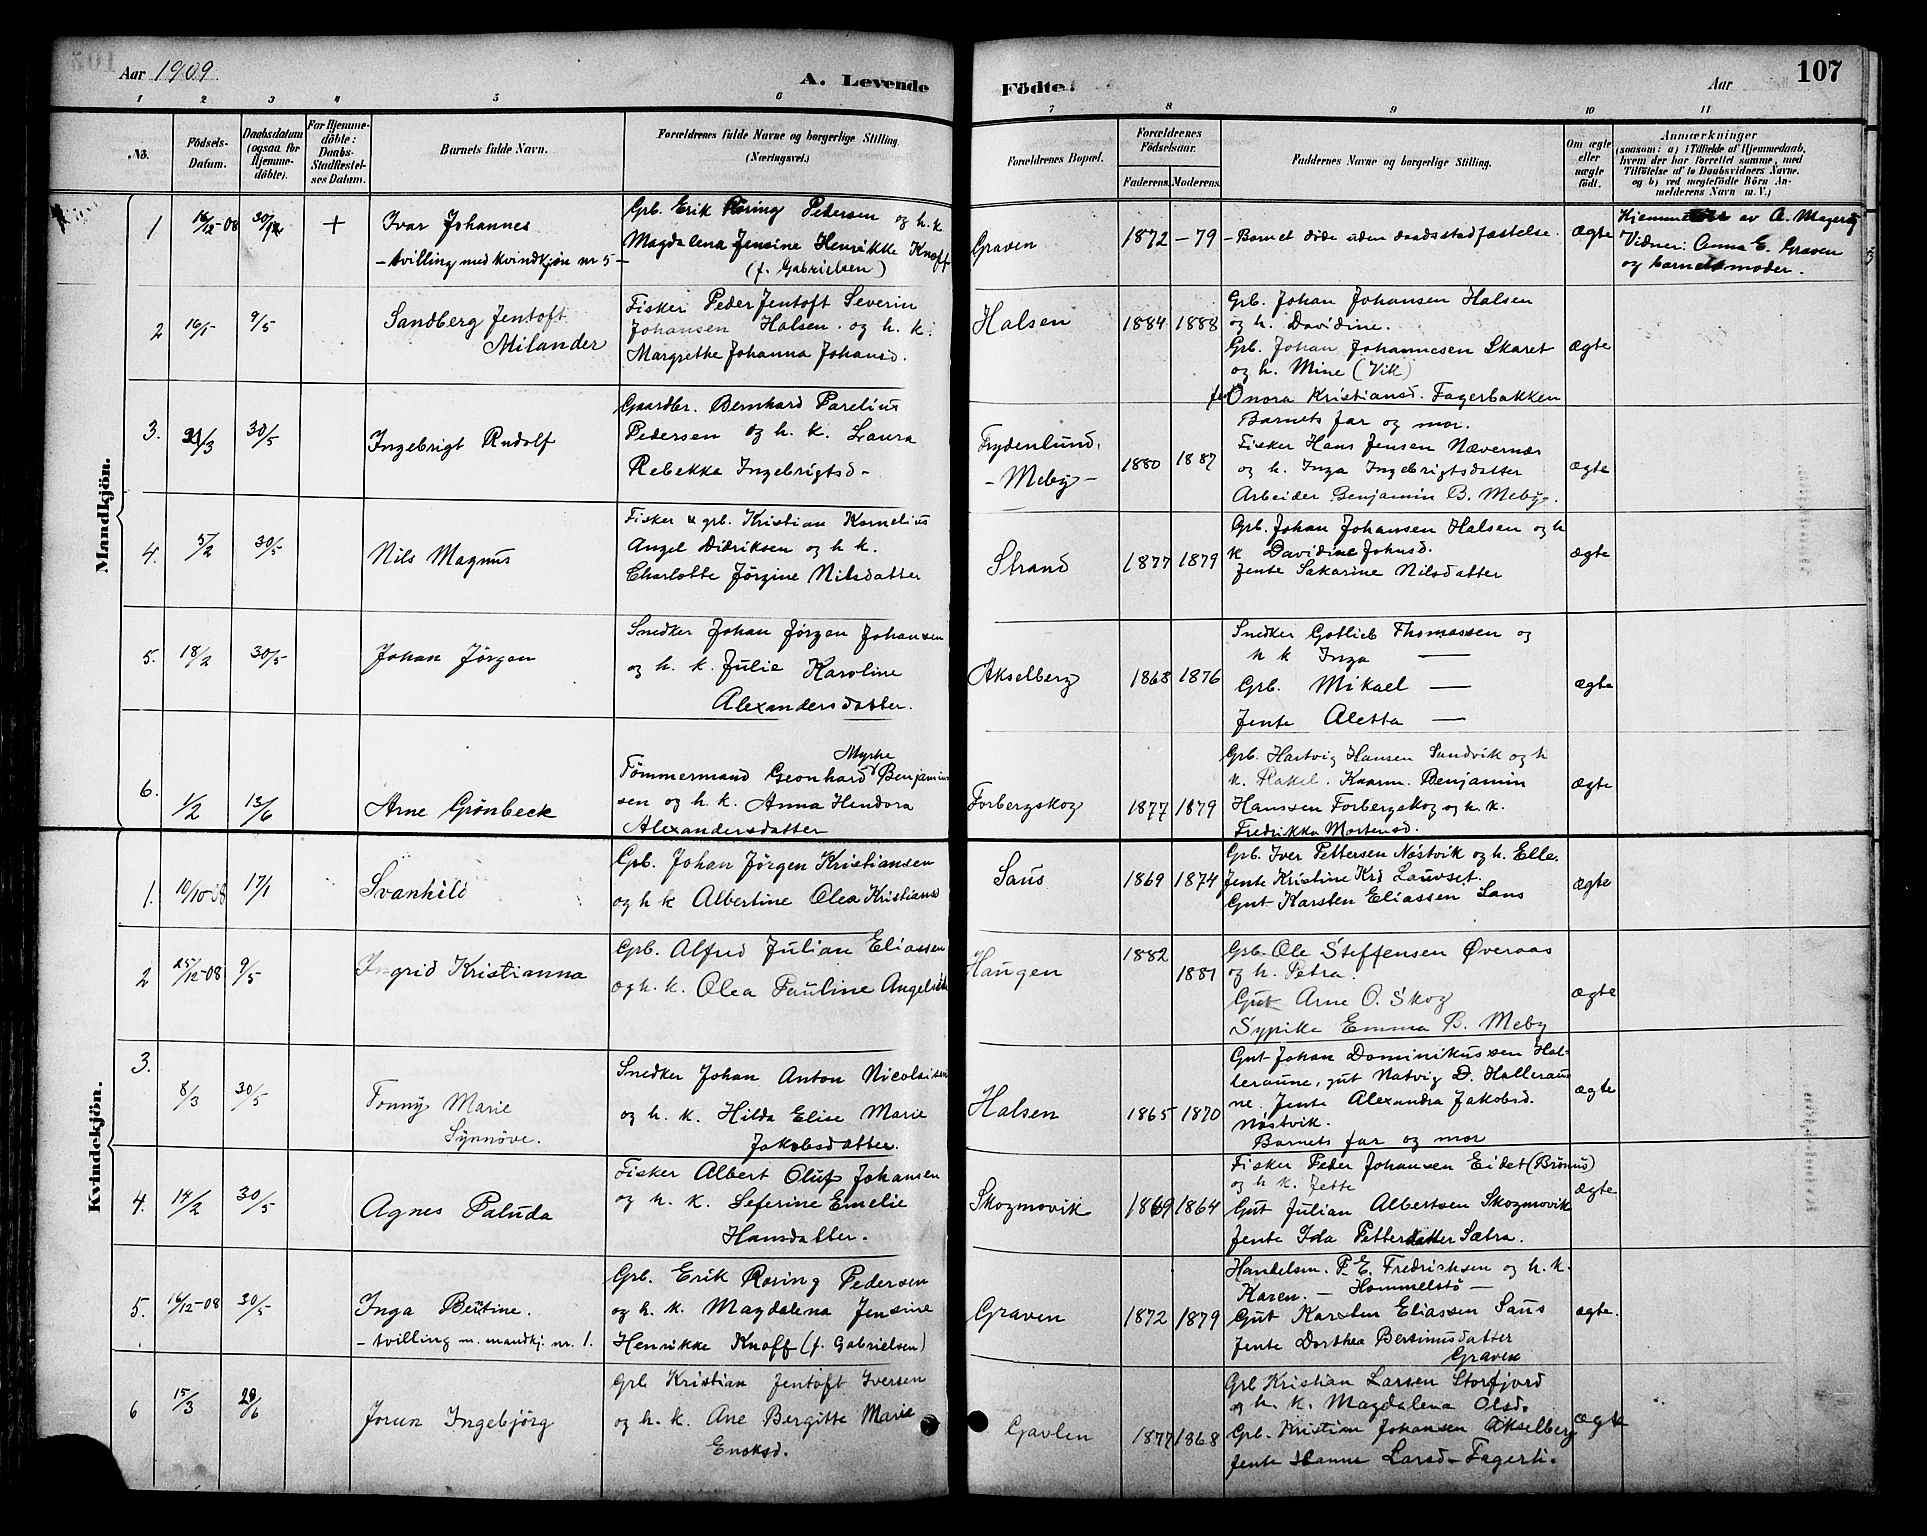 Aar 1909.
A. Levende
Födte.
Aar
107
1 2 3 4 5 6 7 8 9 10 11
No.
Födsels-
Datum.
Daabsdatum
(ogsaa for
Hjemme-
döbte).
For Hjemme-
döbte:
Daabs-
Stadfæstel-
ses Datum.
Barnets fulde Navn.
Forældrenes fulde Navne og borgerlige Stilling
(Næringsvei.)
Forældrenes Bopæl.
Forældrenes
Födselsaar.
Faderens. Moderens.
Faddernes Navne og borgerlige Stilling.
Om ægte
eller
uægte
født.
Anmærkninger
(saasom: a) i Tilfælde af Hjemmedaab,
hvem der har forrettet samme, med
Tilføielse af to Daabsvidners Navne,
og b) ved uægtefödte Börn An-
melderens Navn m. V.)
Mandkjön.
1
16/12-08
30/12
+
Ivar Johannes
- tvilling med kvindkjön nr 5 -
Grb. Erik Rosing Pedersen og h. k
Magdalena Jensine Henrikke Knoff
(f. Gabrielsen)
Graven
1872 - 79
- Barnet døde uden daabsstadfæstelse.
ægte
av A. Magerøy
Vidner: Anna E. Graven
og barnets moder.
2
16/1
9/5
Sandberg Jentoft
Milander
Fisker Peder Jentoft Severin
Johansen Halsen. og h. k.
Margrethe Johanna Johansd.
Halsen
1884 1888
Grb. Johan Johansen Halsen
og h. Davidine.
Grb. Johan Johannesen Skaret
og h. Mine (Vik)
Onora Kristiansd. Fagerbakken
ægte
3.
30/5
Ingebrigt Rudolf
Gaardbr. Bernhard Parelius
Pedersen og h. k. Laura
Rebekka Ingebrigtsd -
Frydenlund,
- Meby -
1880 1887
Barnets far og mor.
Fisker Hans Jensen Nævernæs
og h. Inga Ingebrigtsdatter
Arbeider Benjamin B. Meby.
ægte
4.
5/2
30/5
Nils Magnus
Fisker & grb. Kristian Kornelius
Angel Didriksen og h k.
Charlotte Jørgine Nilsdatter
Strand
1877 1879
Grb. Johan Johansen Halsen og h
k Davidine Johnsd.
Jente Sakarine Nilsdatter
ægte
5.
18/2
30/5
Johan Jörgen
Snedker Johan Jørgen Johansen
og h. k. Julie Karoline
Alexandersdatter.
Akselberg
1868 1876
Snedker Gotlieb Thomassen og
h k Inga —
Grb. Mikael —
Jente Aletta —
ægte
6.
1/2
13/6
Arne Grønbeck
Myrhe
Tömmermand Geonhard Benjamin
sen og h. k. Anna Hendora
Alexandersdatter
Forbergskog
1877 1879
Grb. Hartvig Hansen Sandvik og h
k. Rakel. Kaarm. Benjamin
Hanssen Forbergskog og h. k.
Fredrikka Mortensd.
ægte
Kvindekjön.
1.
10/10-08
17/1
Svanhild
Grb. Johan Jørgen Kristiansen
og h. k Albertine Olea Kristiansd
Saus
1869 1874
Grb. Iver Pettersen Nøstvik og h. Elle.
Jente Kristine Krd Lauvset.
Gut Karsten Eliassen Saus
ægte
2
25/12-08
9/5
Ingrid Kristianna
Grb. Alfred Julian Eliassen
og h. k. Olea Pauline
Haugen
1882
1881
Grb. Ole Steffensen Øveraas
og h. Petra.
Gut Arne O. Skog
Sypike Emma B. Meby
ægte
3.
8/3
30/5
Tonny Marie
Synnöve.
Snedker Johan Anton Nicolaisen
og h. k. Hilda Elise Marie
Jakobsdatter.
Halsen
1865 1870
Gut Johan Dominikussen Hal-
leraune, gut Natvig D. Halleraun
ne. Jente Alexandra Jakobsd.
Nøstvik.
Barnets far og mor
ægte
4.
14/2
30/5
Agnes Paluda
Fisker Albert Oluf Johansen
og h. k. Seferine Emelie
Hansdatter.
Skogmovik
1869 1864
Fisker Peder Johansen Eidet (Brönnö)
og h. k. Jette
Gut Julian Albertsen Skogmovik
Jente Ida Petterdatter Sætra.
ægte
5.
16/12-08
30/5
Inga Betine.
- tvilling m. mandkj. nr. 1.
Grb. Erik Rosing Pedersen
og h. k. Magdalena Jensine
Henrikke Knoff (f. Gabrielsen)
Graven
1872 1879
Handelsm. P. E. Fredriksen og h. k.
Karen. — Hommelstö —
Gut Karsten Eliassen Saus
Jente Dorthea Bersinusdatter
Graven
ægte.
6
15/3
Jorun Ingebjörg
Grb Kristian Jentoft Iversen
og h. k. Ane Bergitte Marie
Enoksd.
Gavlen
1877 1868
Grb Kristian Larsen Storfjord
og h. k. Magdalena Olsd.
Grb. Kristian Johansen Akselberg
Jente Hanna Larsd - Fagerli.
ægte